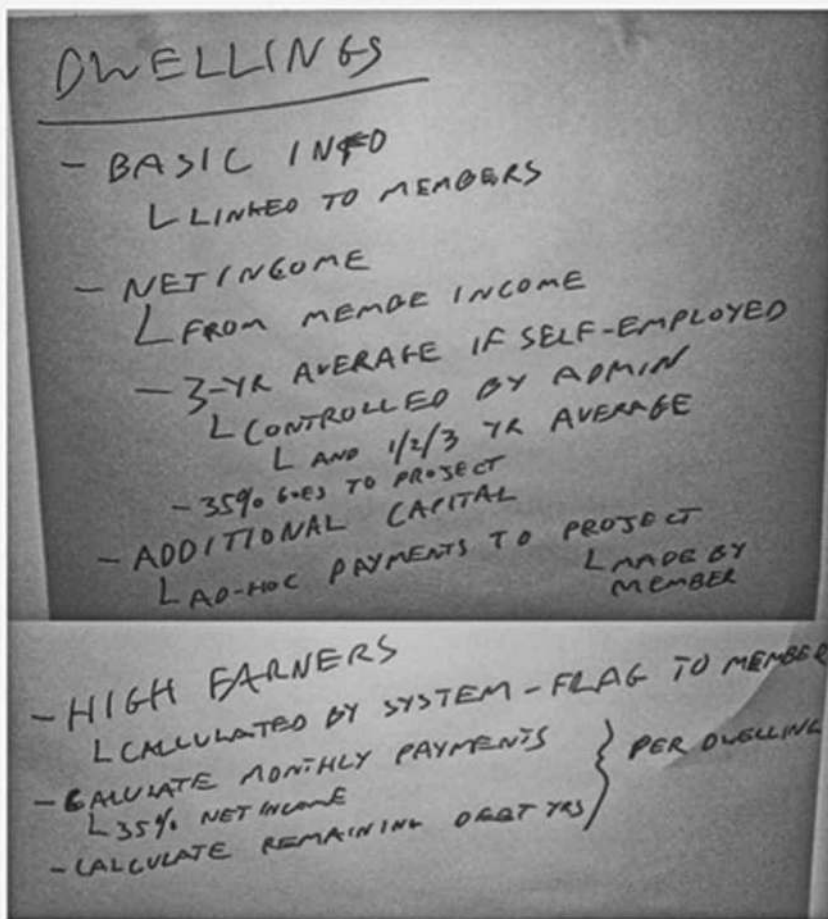 DWELLINGS
- BASIC INFO
L LINKED TO MEMBERS
- NET INCOME
L FROM MEMBE INCOME
- 3-YR AVERAGE IF SELF-EMPLOYED
L CONTROLLED BY ADMIN
L AND 1/2/3 YR AVERAGE
- 35% GOES TO PROJECT
- ADDITIONAL CAPITAL
L AD-HOC PAYMENTS TO PROJECT
L MADE BY
MEMBER
- HIGH EARNERS
L CALCULATED BY SYSTEM - FLAG TO MEMBER
- CALULATE MONTHLY PAYMENTS } PER DWELLING
L 35% NET INCOME
- CALCULATE REMAINING DEBT YRS